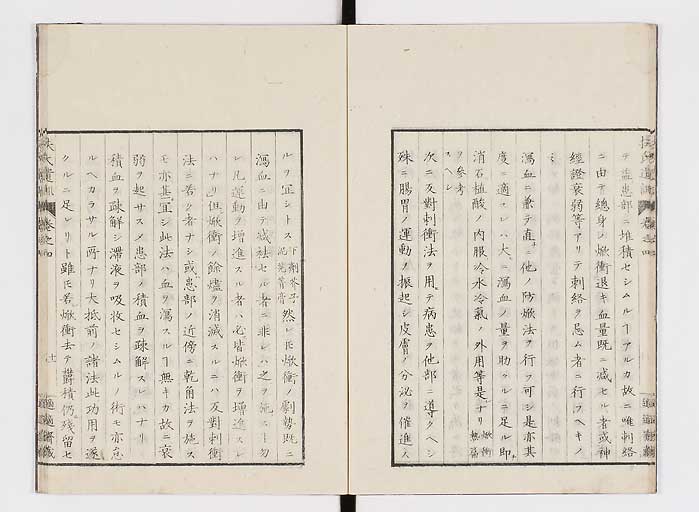 テ盆患部ニ堆積セシムルヿアルカ故ニ唯刺絡
ニ由テ總身ノ焮衝退キ血量既ニ减セル者或神
經證衰弱等アリテ刺絡ヲ忌ム者ニ行フヘキノ
ミ
瀉血ニ兼テ直ニ他ノ防焮法ヲ行フ可シ是亦其
度ニ適スレハ大ニ瀉血ノ量ヲ助クルニ足ル即
消石植酸ノ内服冷水冷氣ノ外用等是ナリ
ヲ參考
スヘシ
次ニ反對刺衝法ヲ用テ病患ヲ他部ニ導クヘシ
殊ニ腸胃ノ運動ヲ振起シ皮膚ノ分泌ヲ催進ス
ルヲ正シトス下劑芥子泥芫菁膏然レ𪜈焮衝ノ劇勢既ニ
瀉血ニ由テ减祛セル者ニ非レハ之ヲ施スヿ勿
レ凡運動ヲ増進スル者ハ必皆焮衝ヲ増進スレ
ハナリ但焮衝ノ餘燼ヲ消滅スルニハ反對刺衝
法ニ若ク者ナシ或患部ノ近傍ニ乾角法ヲ施ス
モ亦甚宜シ此法ハ血ヲ瀉スルヿ無キカ故ニ衰
弱ヲ起サスメ患部ノ積血ヲ疎解スレハナリ
積血ヲ疎解シ滯液ヲ吸收セシムルノ術モ亦怠
ルヘカラサル所ナリ大抵前ノ諸法此功用ヲ遂
クルニ足レリト雖𪜈若焮衝去テ欝積仍残留セ
扶氏遺訓
卷之四